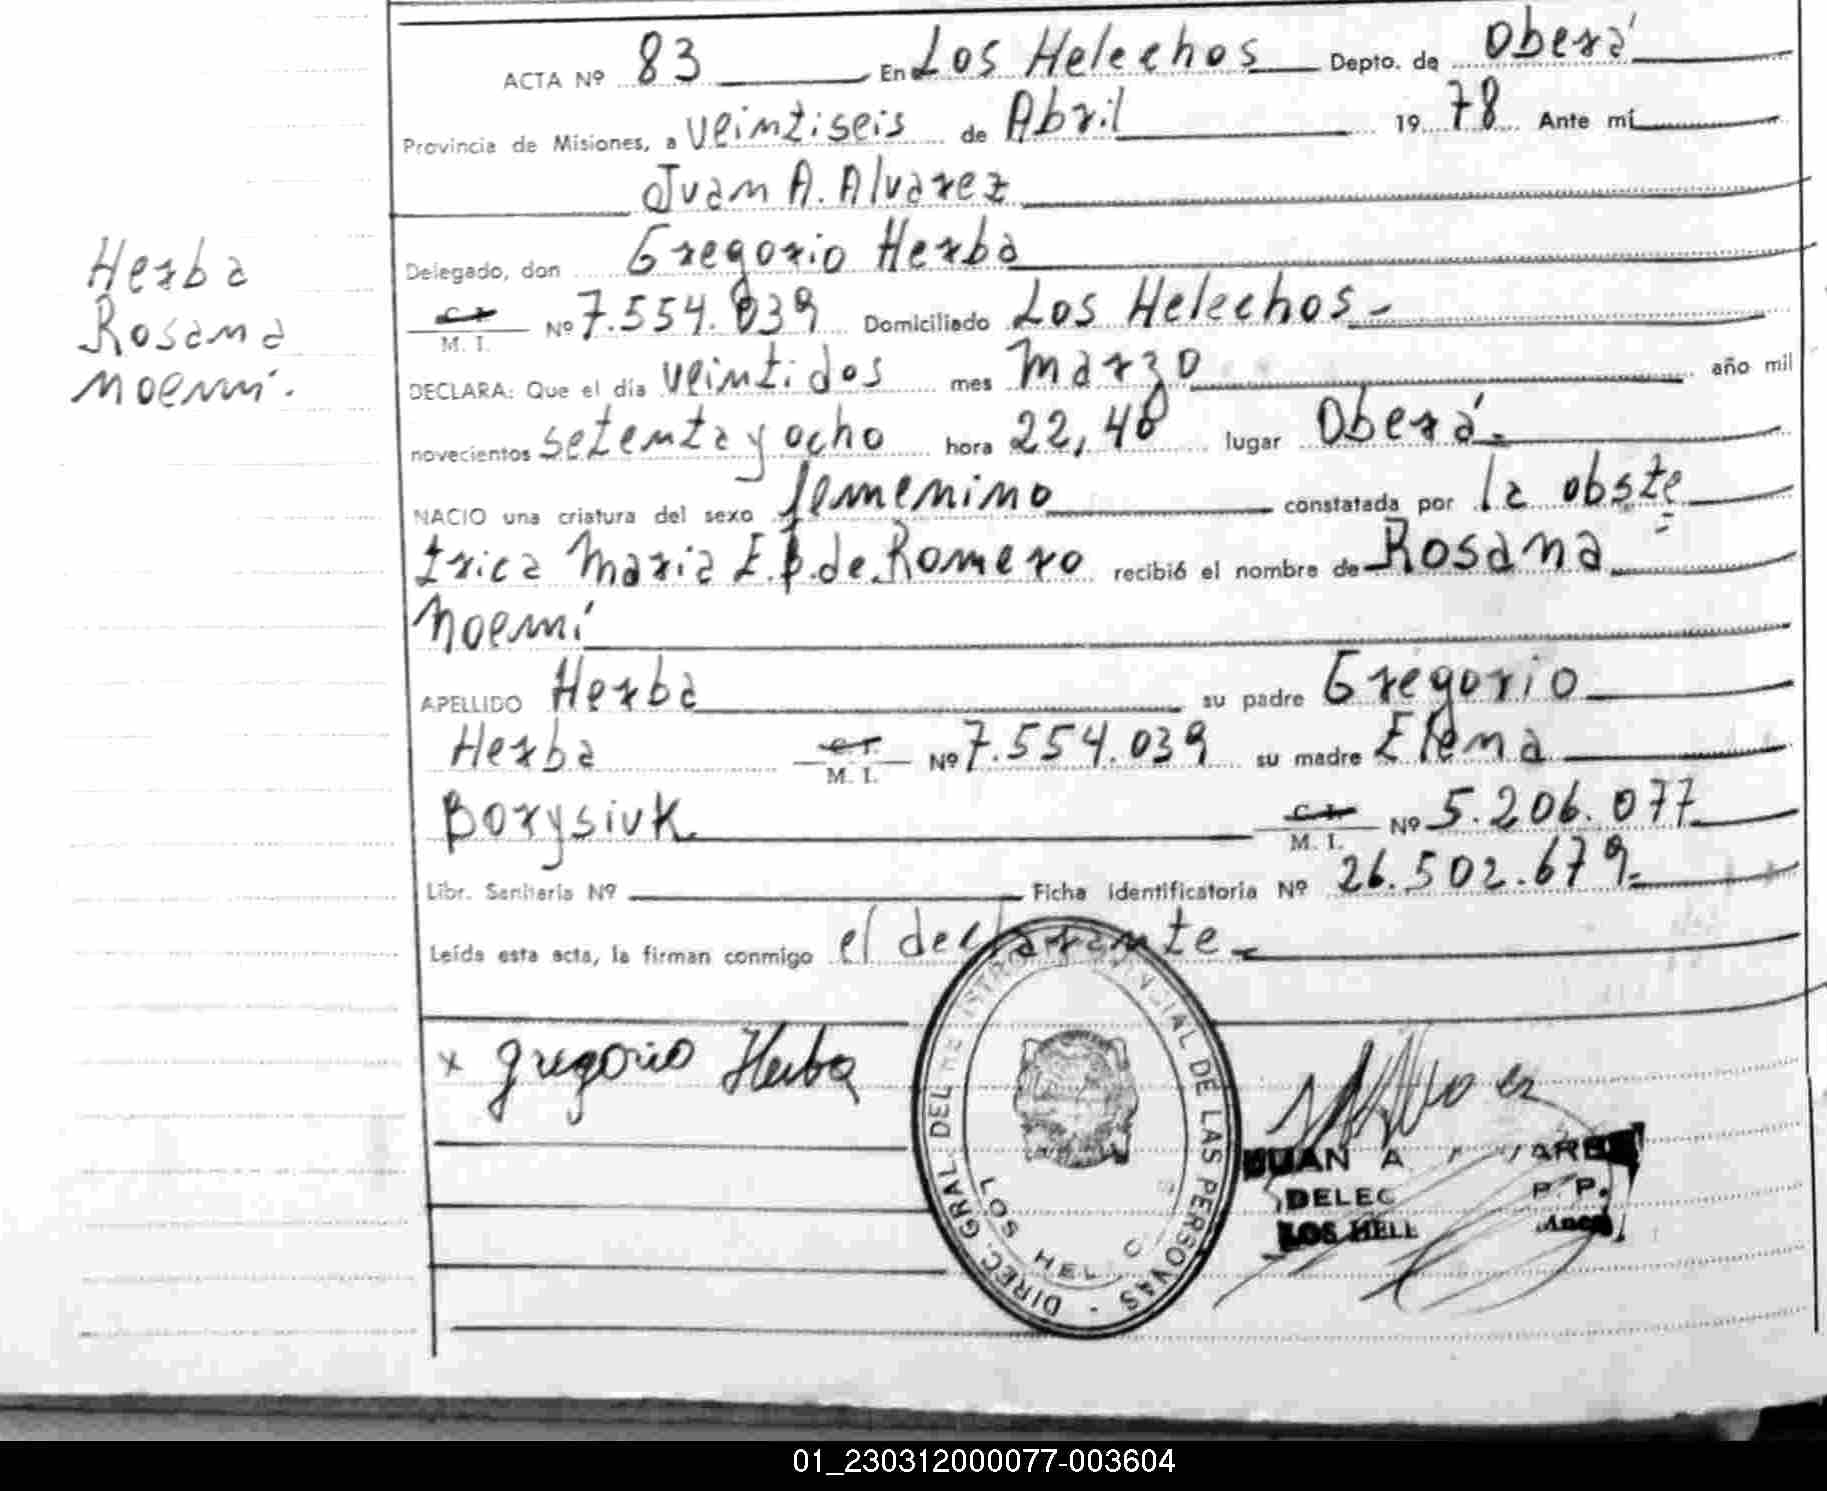 ACTA Nº 83 En Los Helechos Depto. de Oberá
Provincia de Misiones, a veintiseis de Abril 19 78 Ante mí
Juan A. Alvarez
Delegado, don Gregorio Herba
Herba
C. I. M. I. Nº 7.554.039 Domiciliado Los Helechos -
Rosana
DECLARA: Que el día veintidos mes Marzo año mil
Noemí.
novecientos setenta y ocho hora 22,40 lugar Oberá.
NACIO una criatura del sexo femenino constatada por la obste
trica Maria E. B. de Romero recibió el nombre de Rosana
Noemí
APELLIDO Herba su padre Gregorio
Herba C. I. M. I. Nº 7.554.039 su madre Elena
Borysiuk C. I. M. I. Nº 5.206.077
Libr. Sanitaria Nº Ficha identificatoria Nº 26.502.679.
Leída esta acta, la firman conmigo el declarante
x Gregorio Herba
DIREC. GRAL. DEL DE LAS PERSONAS -
LOS HEL
JUAN A
DELEG P. P.
LOS HELE
01_230312000077-003604